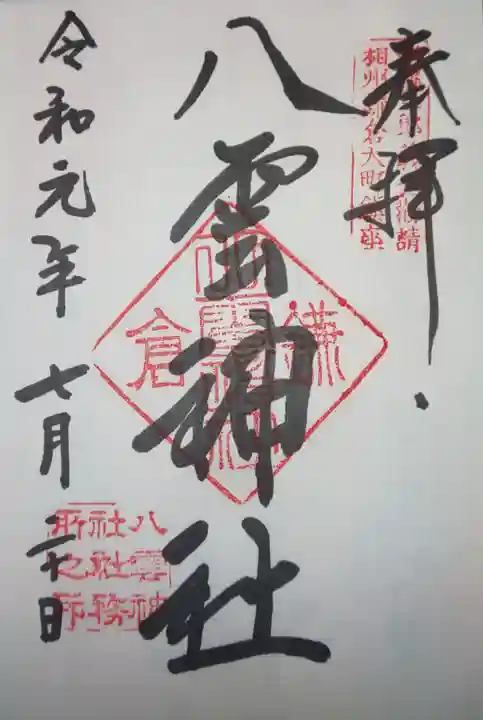 奉拝
相州鎌倉大町鎮座
八雲神社
鎌倉
令和元年七月二十日
八雲神
社社務
所之印